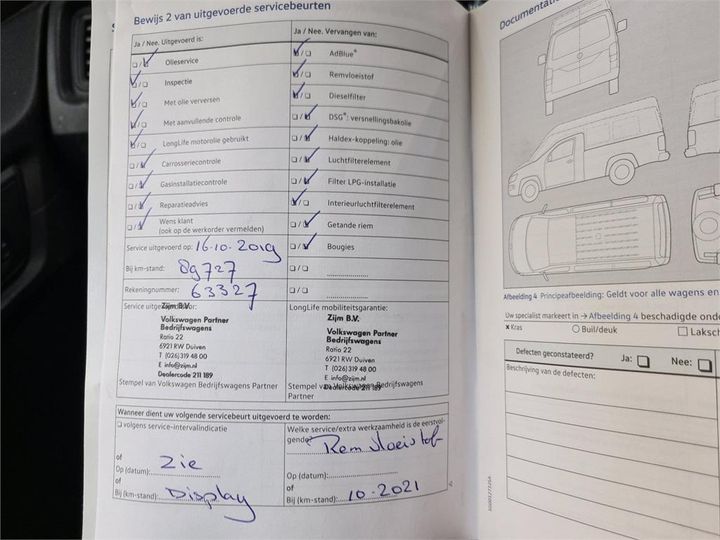 Bewijs 2 van uitgevoerde servicebeurten
Ja / Nee. Uitgevoerd is:
Olieservice
Inspectie
Met olie verversen
Met aanvullende controle
LongLife motorolie gebruikt
Carrosseriecontrole
Gasinstallatiecontrole
Reparatieadvies
Wens klant
(ook op de werkorder vermelden)
Service uitgevoerd op: 16-10-2019
Bij km-stand: 89727
Rekeningnummer: 63327
Service uitgevoerd door:
Zijm B.V.
Volkswagen Partner
Bedrijfswagens
Ratio 22
6921 RW Duiven
T (026) 319 48 00
E info@zijm.nl
Dealercode 211 189
Stempel van Volkswagen Bedrijfswagens Partner
Ja / Nee. Vervangen van:
AdBlue®
Remvloeistof
Dieselfilter
DSG®: versnellingsbakolie
Haldex-koppeling: olie
Luchtfilterelement
Filter LPG-installatie
Interieurluchtfilterelement
Getande riem
Bougies
LongLife mobiliteitsgarantie:
Zijm B.V.
Volkswagen Partner
Bedrijfswagens
Ratio 22
6921 RW Duiven
T (026) 319 48 00
E info@zijm.nl
Dealercode 211 189
Stempel van Volkswagen Bedrijfswagens
Partner
Wanneer dient uw volgende servicebeurt uitgevoerd te worden:
volgens service-intervalindicatie
of
Zie
Op (datum):
of
Bij (km-stand): Display
Welke service/extra werkzaamheid is de eerstvol-
gende? Remvloeistof
of
Op (datum):
of
Bij (km-stand): 10-2021
Documentatie
Afbeelding 4 Principeafbeelding: Geldt voor alle wagens en
Uw specialist markeert in → Afbeelding 4 beschadigde onde
x Kras
Buil/deuk
Laksch
Defecten geconstateerd? Ja: Nee:
Beschrijving van de defecten: